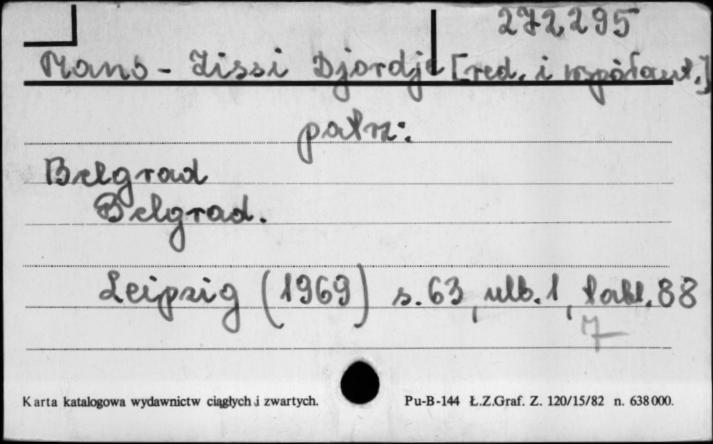 272295
Mano-Zissi Djordje [red. i współaut.]
patrz:
Belgrad
Belgrad.
Leipzig (1969) s. 63, ulb. 1, tabl. 88
7
Karta katalogowa wydawnictw ciągłych i zwartych.
Pu-B-144 Ł.Z.Graf. Z. 120/15/82 n. 638000.